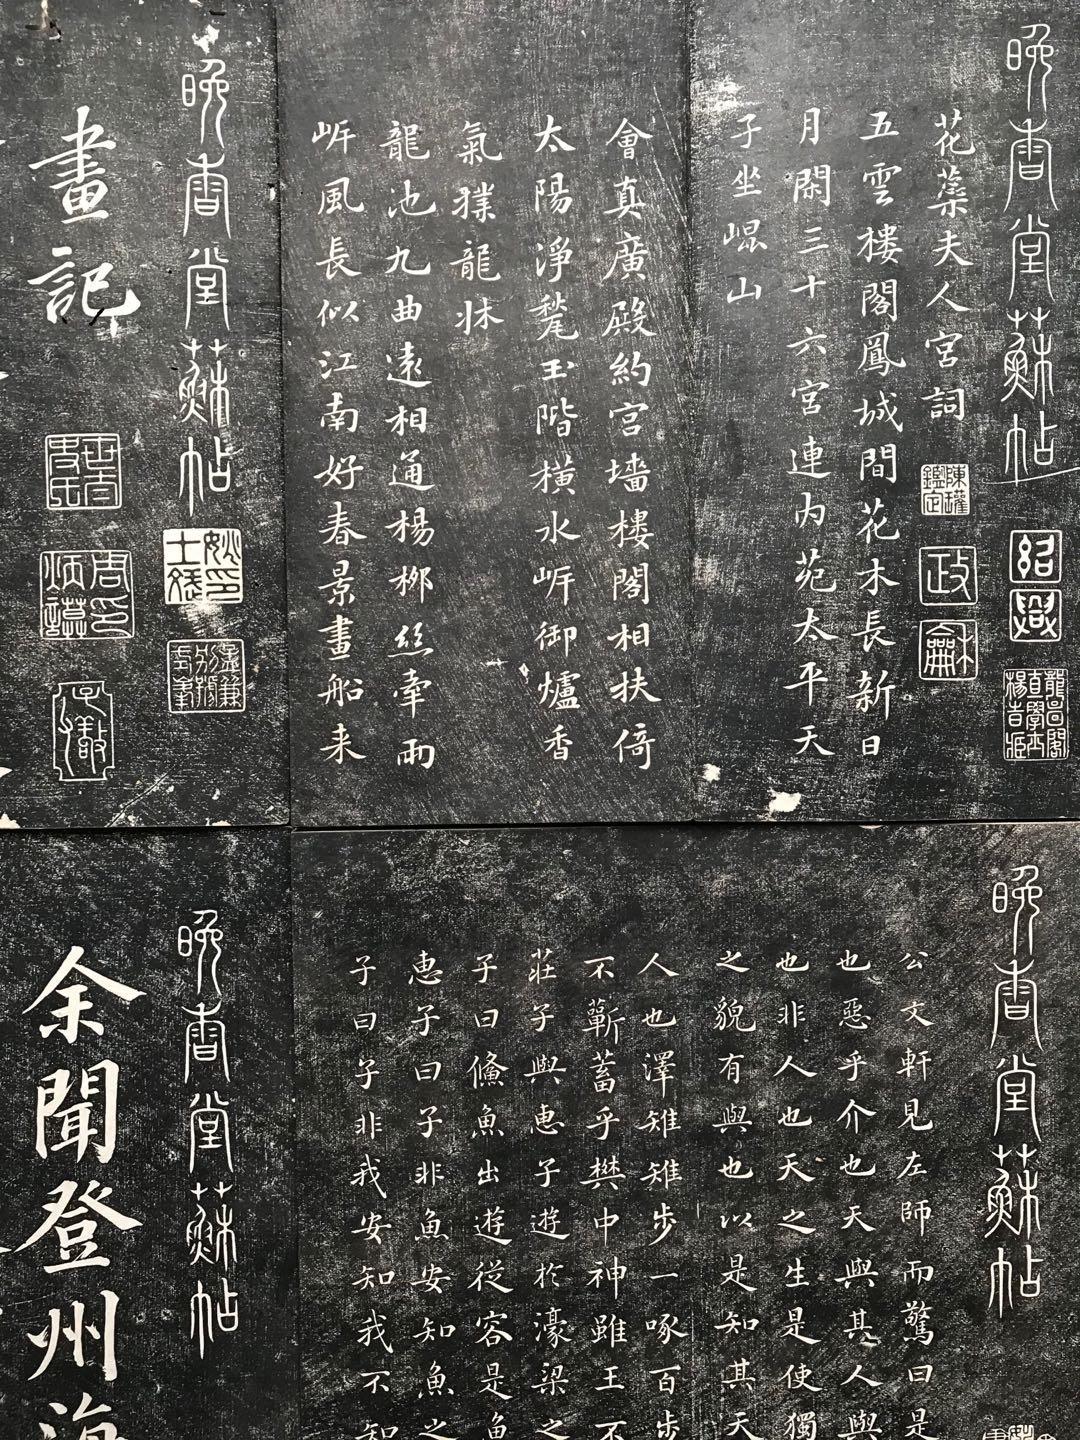 晚香堂蘇帖
花蘂夫人宮詞
陳瓘鑑定
政
龢
紹
興
五雲樓閣鳳城間花木長新日
月閑三十六宮連内苑太平天
子坐崐山
會真廣殿約宮墻樓閣相扶倚
太陽淨甃玉階橫水岸御爐香
氣撲龍牀
龍池九曲遠相通楊栁絲牽兩
岸風長似江南好春景畫船来
晚香堂蘇帖
畫記
晚香堂蘇帖
公文軒見左師而驚曰是
也惡乎介也天與其人與
也非人也天之生是使獨
之貌有與也以是知其天
人也澤雉雉步一啄百步
不蘄蓄乎樊中神雖王不
莊子與惠子遊於濠梁之
子曰鯈魚出遊從容是魚
惠子曰子非魚安知魚之
子曰子非我安知我不知
晚香堂蘇帖
余聞登州海